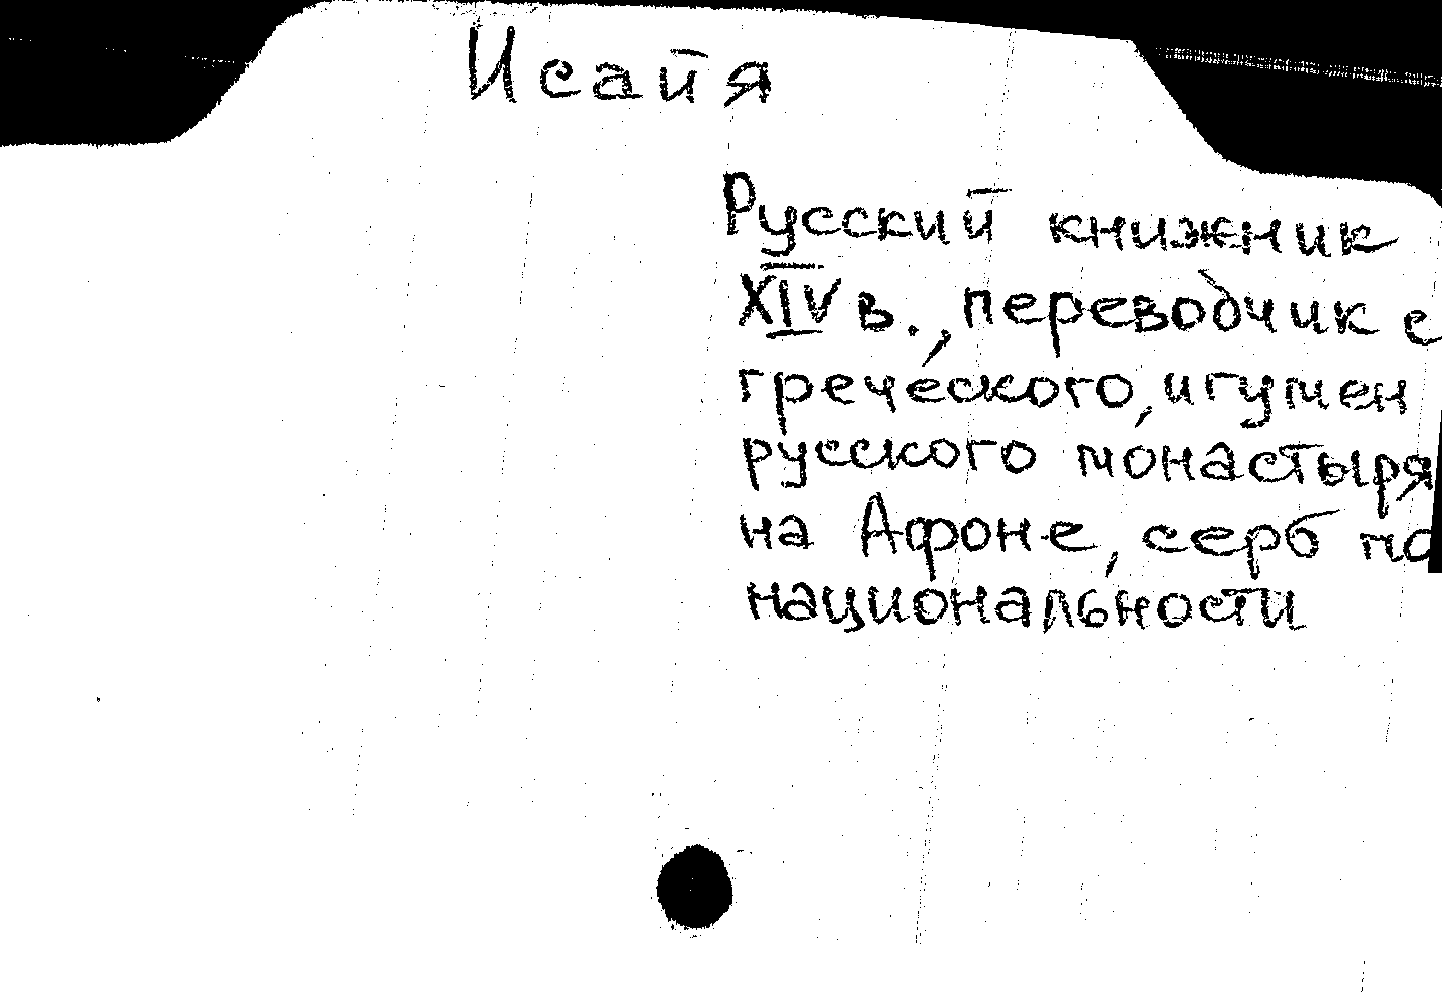 Исайя
Русский книжник
XIV в., переводчик с
греческого, игумен
русского монастыря
на Афоне, серб по
национальности